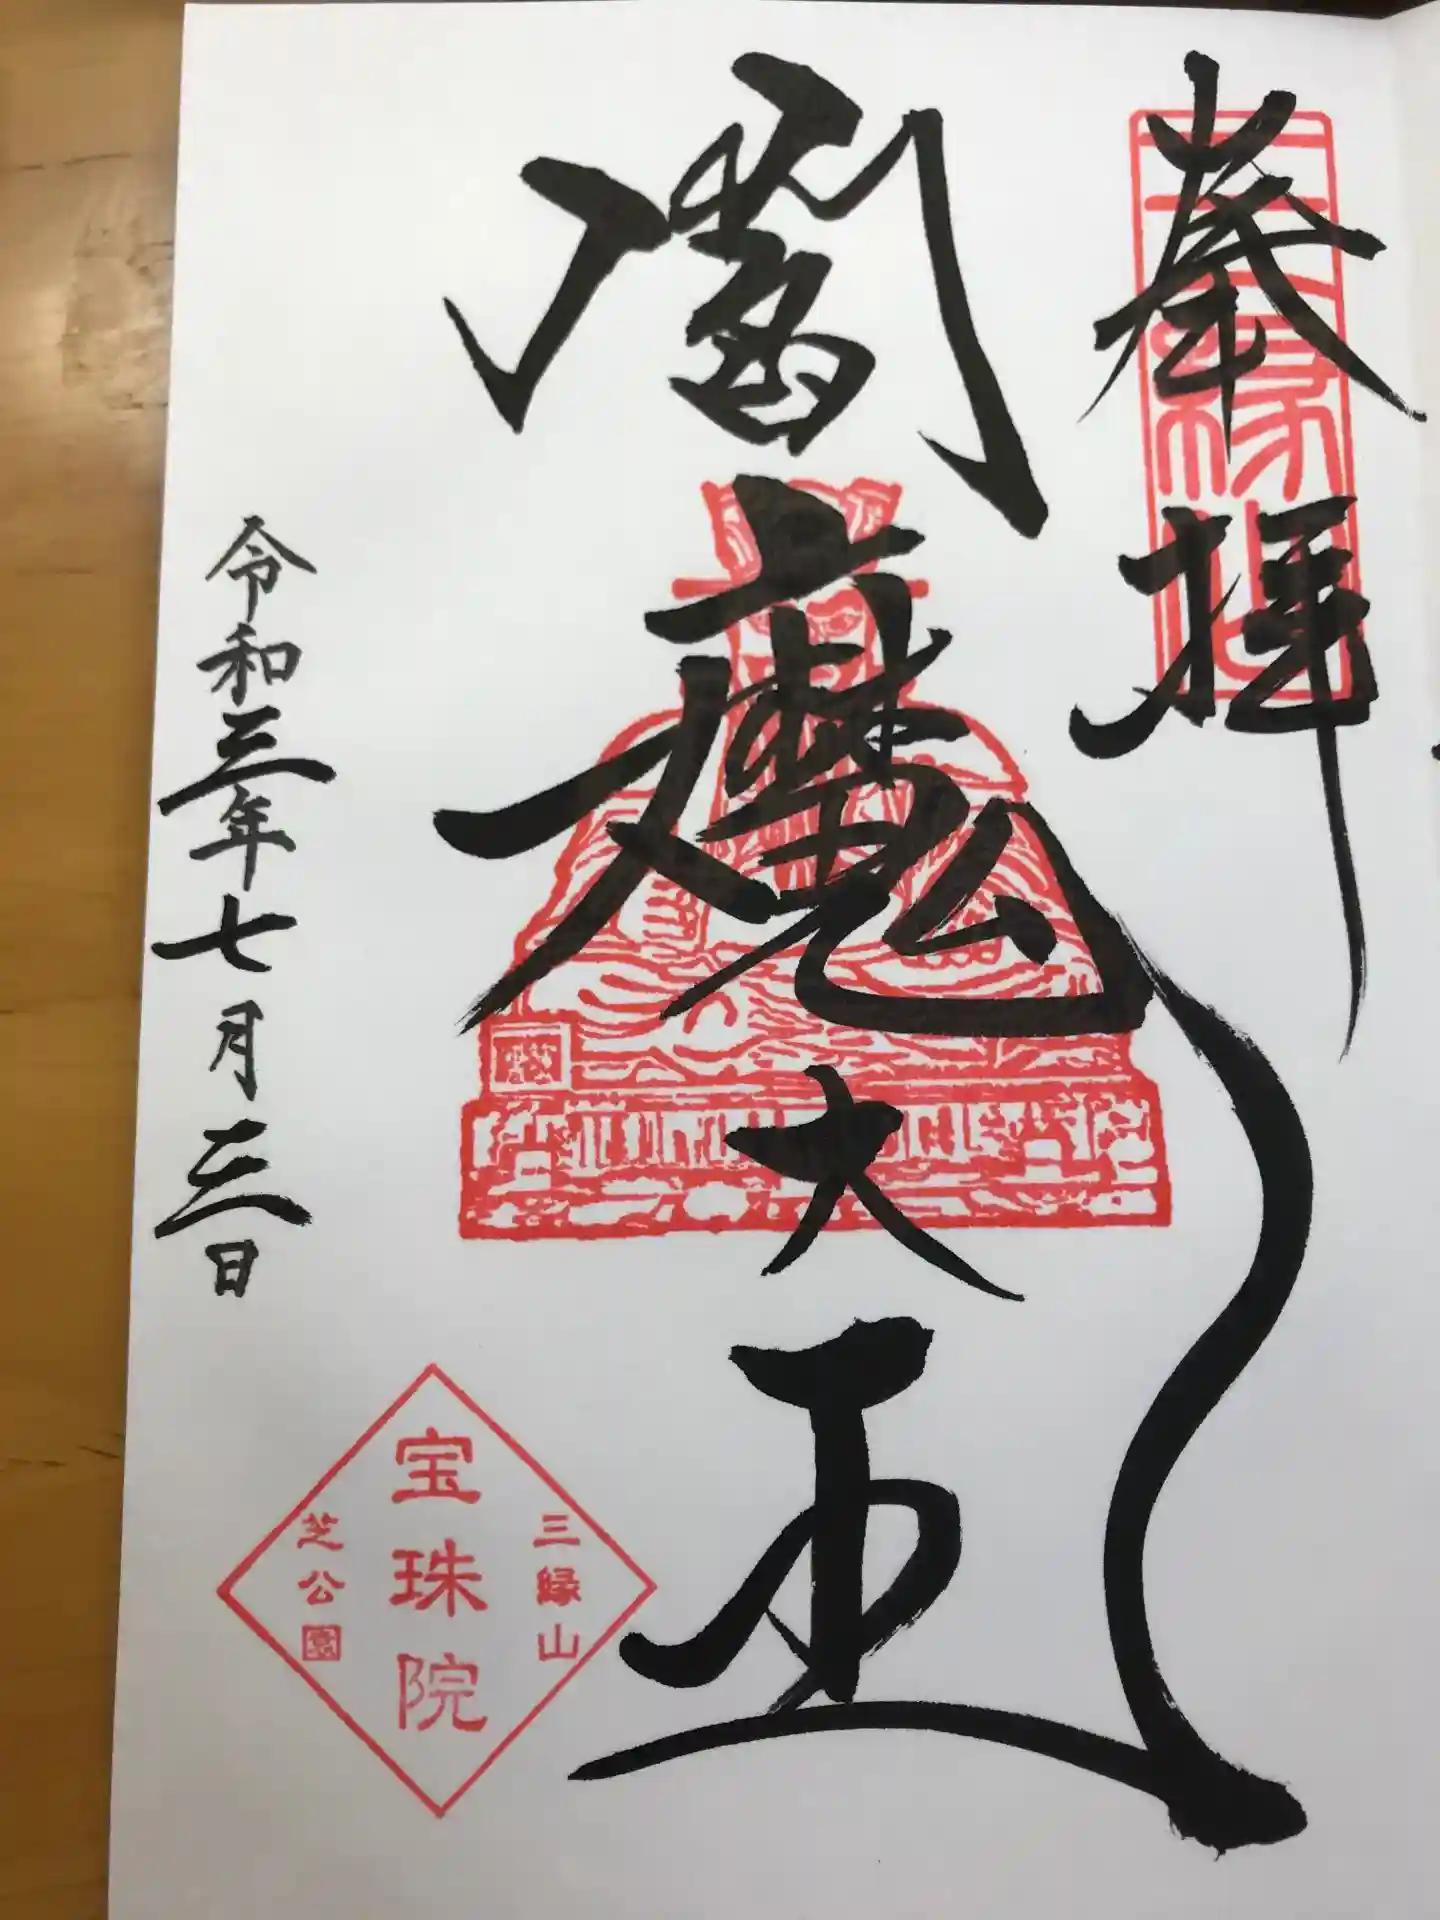 奉拝
三縁山
閻魔大王
令和三年七月三日
三縁山
宝珠院
芝公園